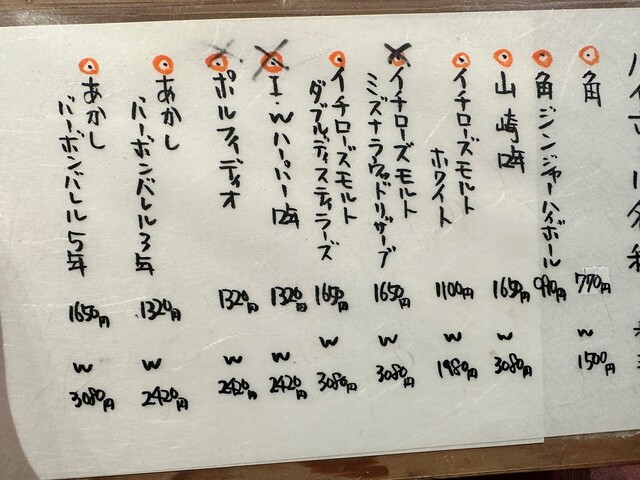 角 770円 W 1500円
角ジンジャーハイボール 990円
山崎12年 1650円 W 3080円
イチローズモルト
ホワイト 1100円 W 1980円
イチローズモルト
ミズナラウッドリザーブ 1650円 W 3080円
イチローズモルト
ダブルディスティラーズ 1650円 W 3080円
I.Wハーパー12年 1320円 W 2420円
ポルフィディオ 1320円 W 2420円
あかし
バーボンバレル3年 1320円 W 2420円
あかし
バーボンバレル5年 1650円 W 3080円